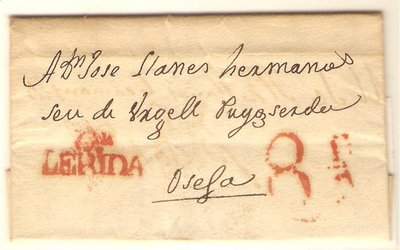 A Dn Jose Llanes hermanos
seu de Urgell Puygserda
LERIDA
8
Osesa